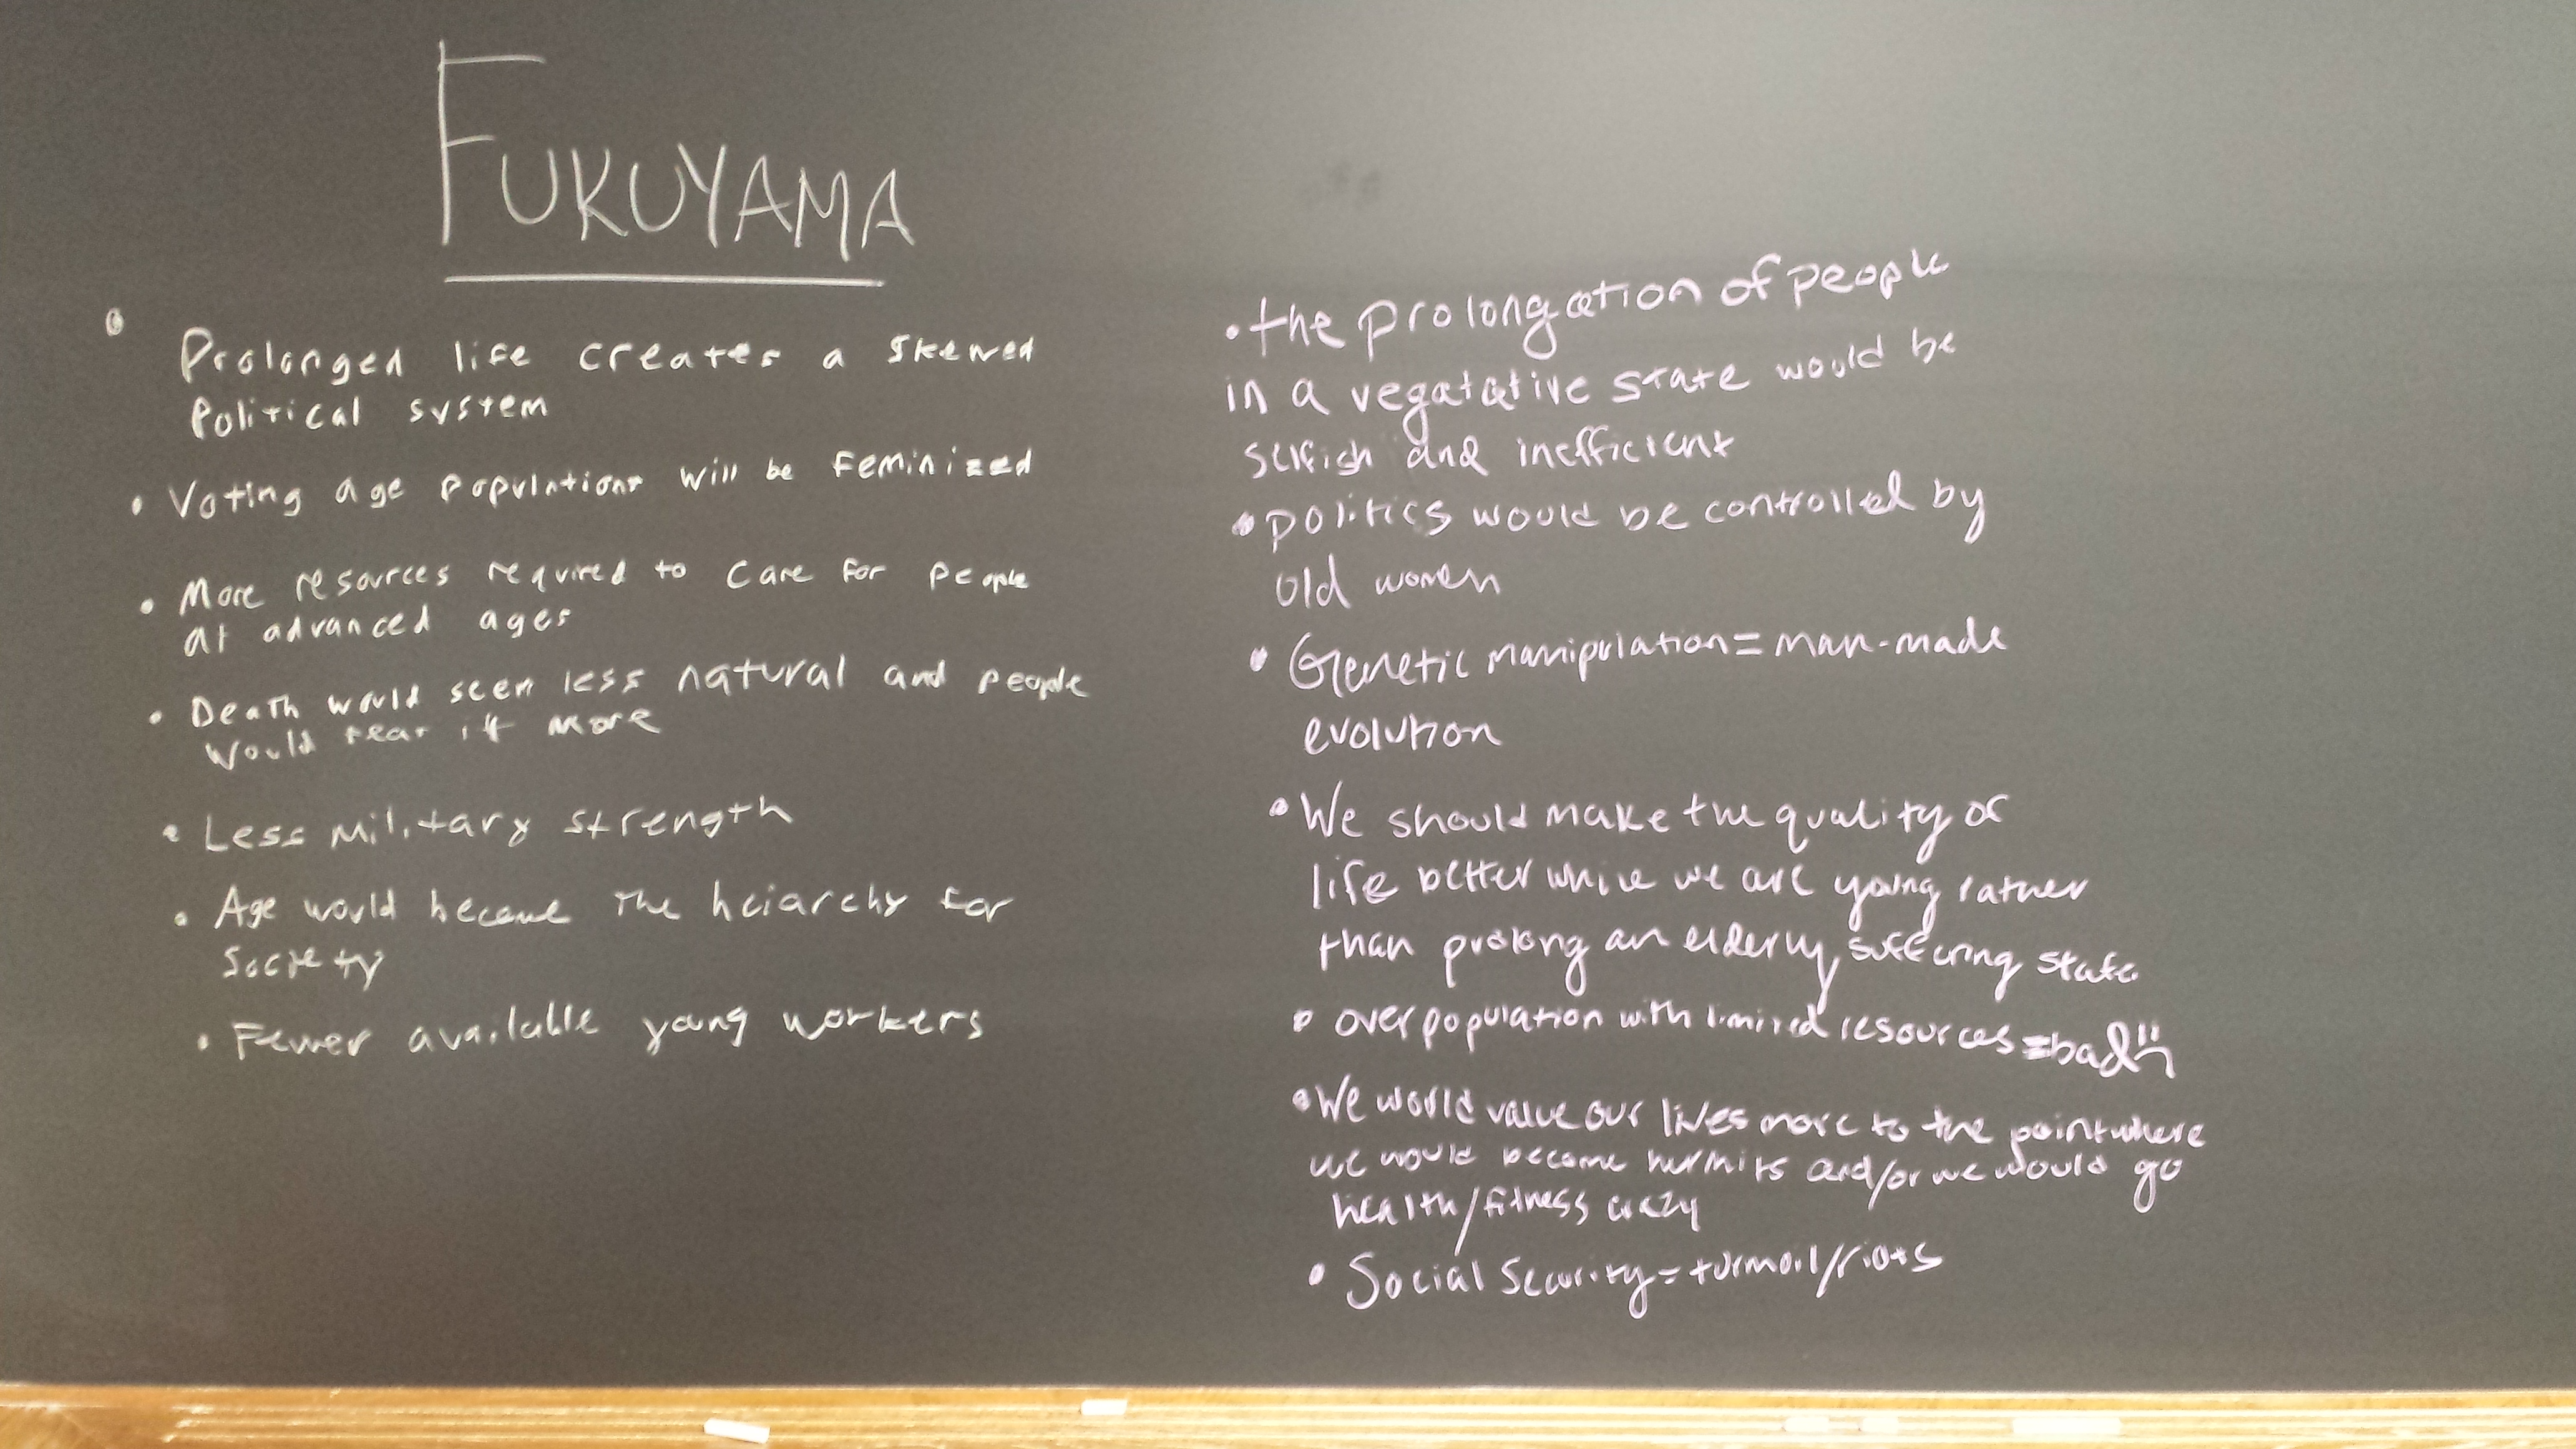 FUKUYAMA
• Prolonged life creates a skewed
Political system
• Voting age populations will be feminized
• More resources required to care for people
at advanced ages
• Death would seem less natural and people
would fear it more
• Less military strength
• Age would become the heiarchy for
society
• Fewer available young workers
• the prolongation of people
in a vegatative state would be
selfish and inefficient
• politics would be controlled by
old women
• Genetic manipulation = man-made
evolution
• We should make the quality of
life better while we are young rather
than prolong an elderly, suffering state
• overpopulation with limited resources = bad
• We would value our lives more to the point where
we would become hermits and/or we would go
health/fitness crazy
• Social Security = turmoil/riots